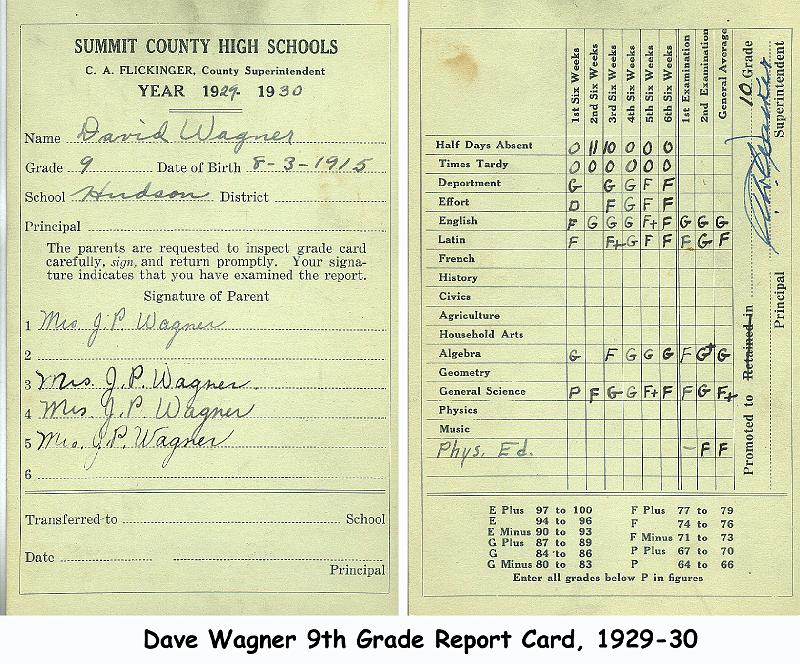 SUMMIT COUNTY HIGH SCHOOLS
C. A. FLICKINGER, County Superintendent
YEAR 1929- 1930
Name David Wagner
Grade 9 Date of Birth 8-3-1915
School Hudson District
Principal
The parents are requested to inspect grade card
carefully, sign, and return promptly. Your signa-
ture indicates that you have examined the report.
Signature of Parent
1 Mrs. J. P. Wagner
2
3 Mrs. J. P. Wagner.
4 Mrs. J. P. Wagner
5 Mrs. J. P. Wagner
6
Transferred to School
Date
Principal
1st Six Weeks 2nd Six Weeks 3rd Six Weeks 4th Six Weeks 5th Six Weeks 6th Six Weeks 1st Examination 2nd Examination General Average
Half Days Absent 0 11 10 0 0 0
Times Tardy 0 0 0 0 0 0
Department G G G F F
Effort D F G F F
English F G G G F+ F G G G
Latin F F+ G F F F G F
French
History
Civics
Agriculture
Household Arts
Algebra G F G G G F G+ G
Geometry
General Science P F G G F+ F F G F+
Physics
Music
Phys. Ed. - F F
Promoted to Retained in 10 Grade
Principal Superintendent
E Plus 97 to 100
E 94 to 96
E Minus 90 to 93
G Plus 87 to 89
G 84 to 86
G Minus 80 to 83
F Plus 77 to 79
F 74 to 76
F Minus 71 to 73
P Plus 67 to 70
P 64 to 66
Enter all grades below P in figures
Dave Wagner 9th Grade Report Card, 1929-30